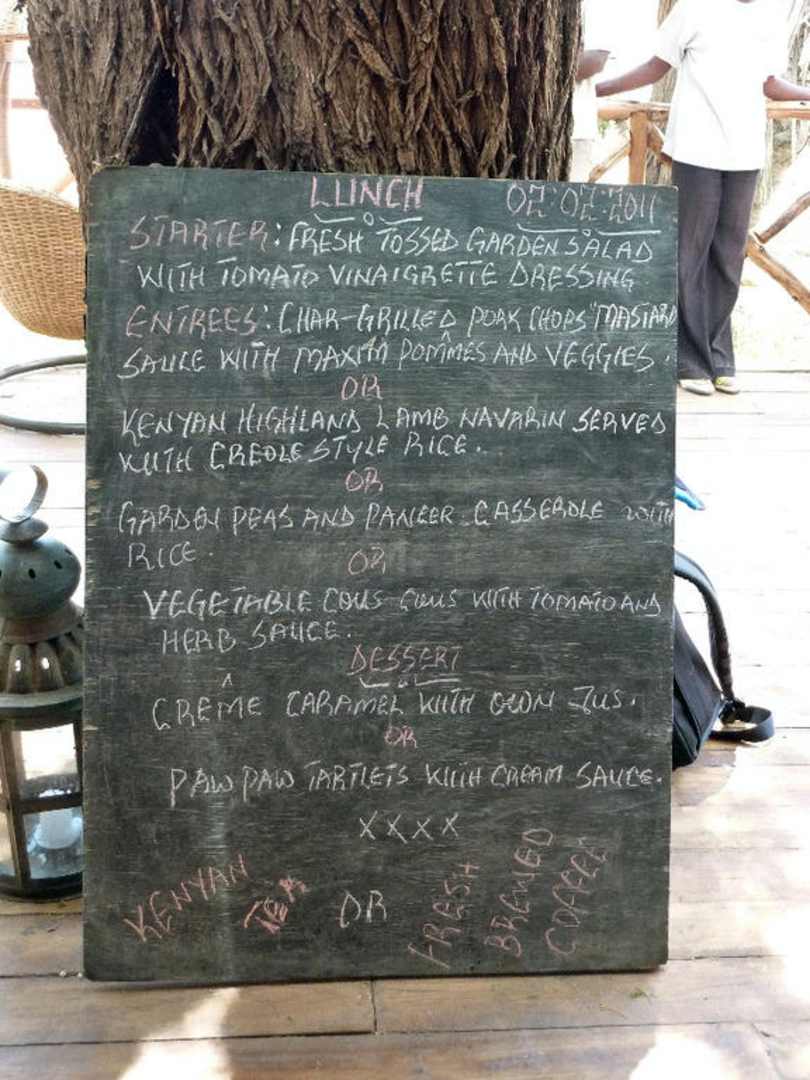 LUNCH 02:02:2011
STARTER: FRESH TOSSED GARDEN SALAD
WITH TOMATO VINAIGRETTE DRESSING
ENTREES: CHAR-GRILLED PORK CHOPS "MASTARD
SAUCE WITH MAXIM POMMES AND VEGGIES.
OR
KENYAN HIGHLAND LAMB NAVARIN SERVED
WITH CREOLE STYLE RICE.
OR
GARDEN PEAS AND PANEER CASSEROLE WITH
RICE.
OR
VEGETABLE COUS-COUS WITH TOMATO AND
HERB SAUCE.
DESSERT
CRÊME CARAMEL WITH OWN JUS.
OR
PAW PAW TARTLETS WITH CREAM SAUCE.
XXXX
KENYAN TEA OR FRESH BREWED COFFEE